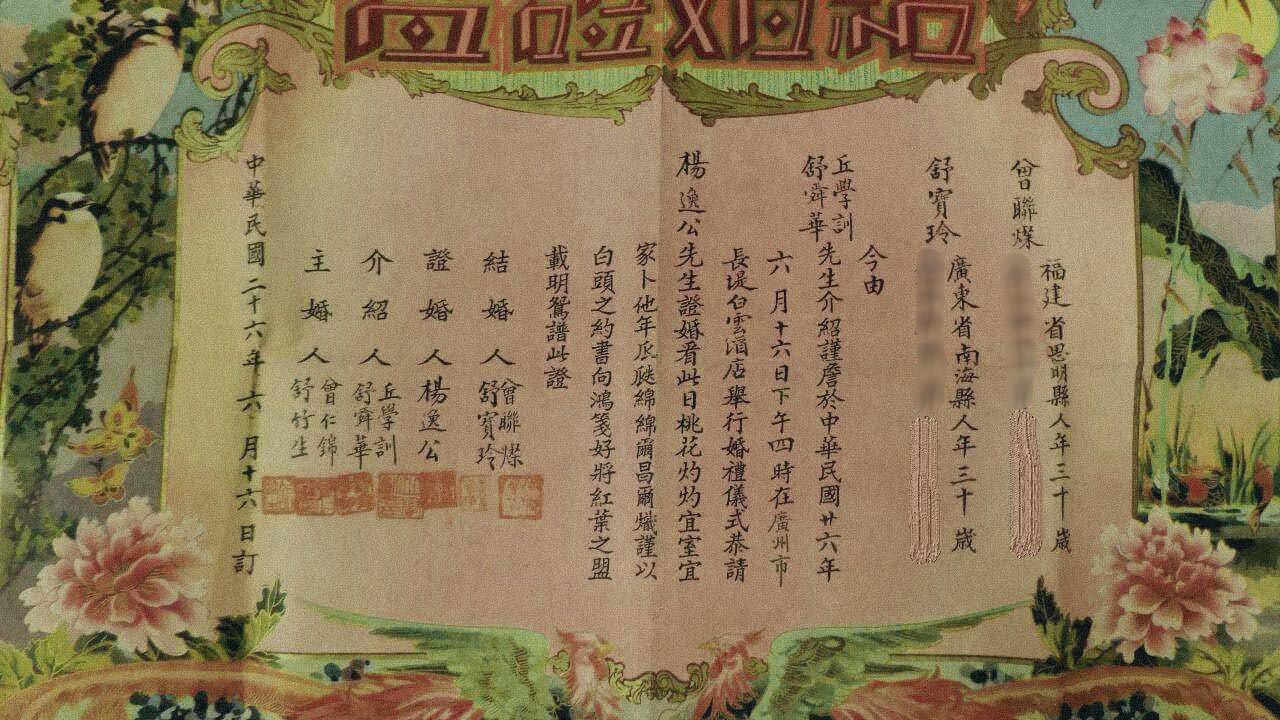 結婚證書
曾聯煤
福建省思明縣人年三十歲
舒寶玲
廣東省南海縣人年三十歲
今由
丘學訓
舒舜華
先生介紹謹詹於中華民國廿六年
六月十六日下午四時在廣州市
長堤白雲酒店舉行婚禮儀式恭請
楊逸公先生證婚看此日桃花灼灼宜室宜
家卜他年瓜瓞綿綿爾昌爾熾謹以
白頭之約書向鴻箋好將紅葉之盟
載明鴛譜此證
結婚人
曾聯煤
舒寶玲
證婚人楊逸公
介紹人
丘學訓
舒舜華
主婚人
曾仁錦
舒竹生
中華民國二十六年六月十六日訂